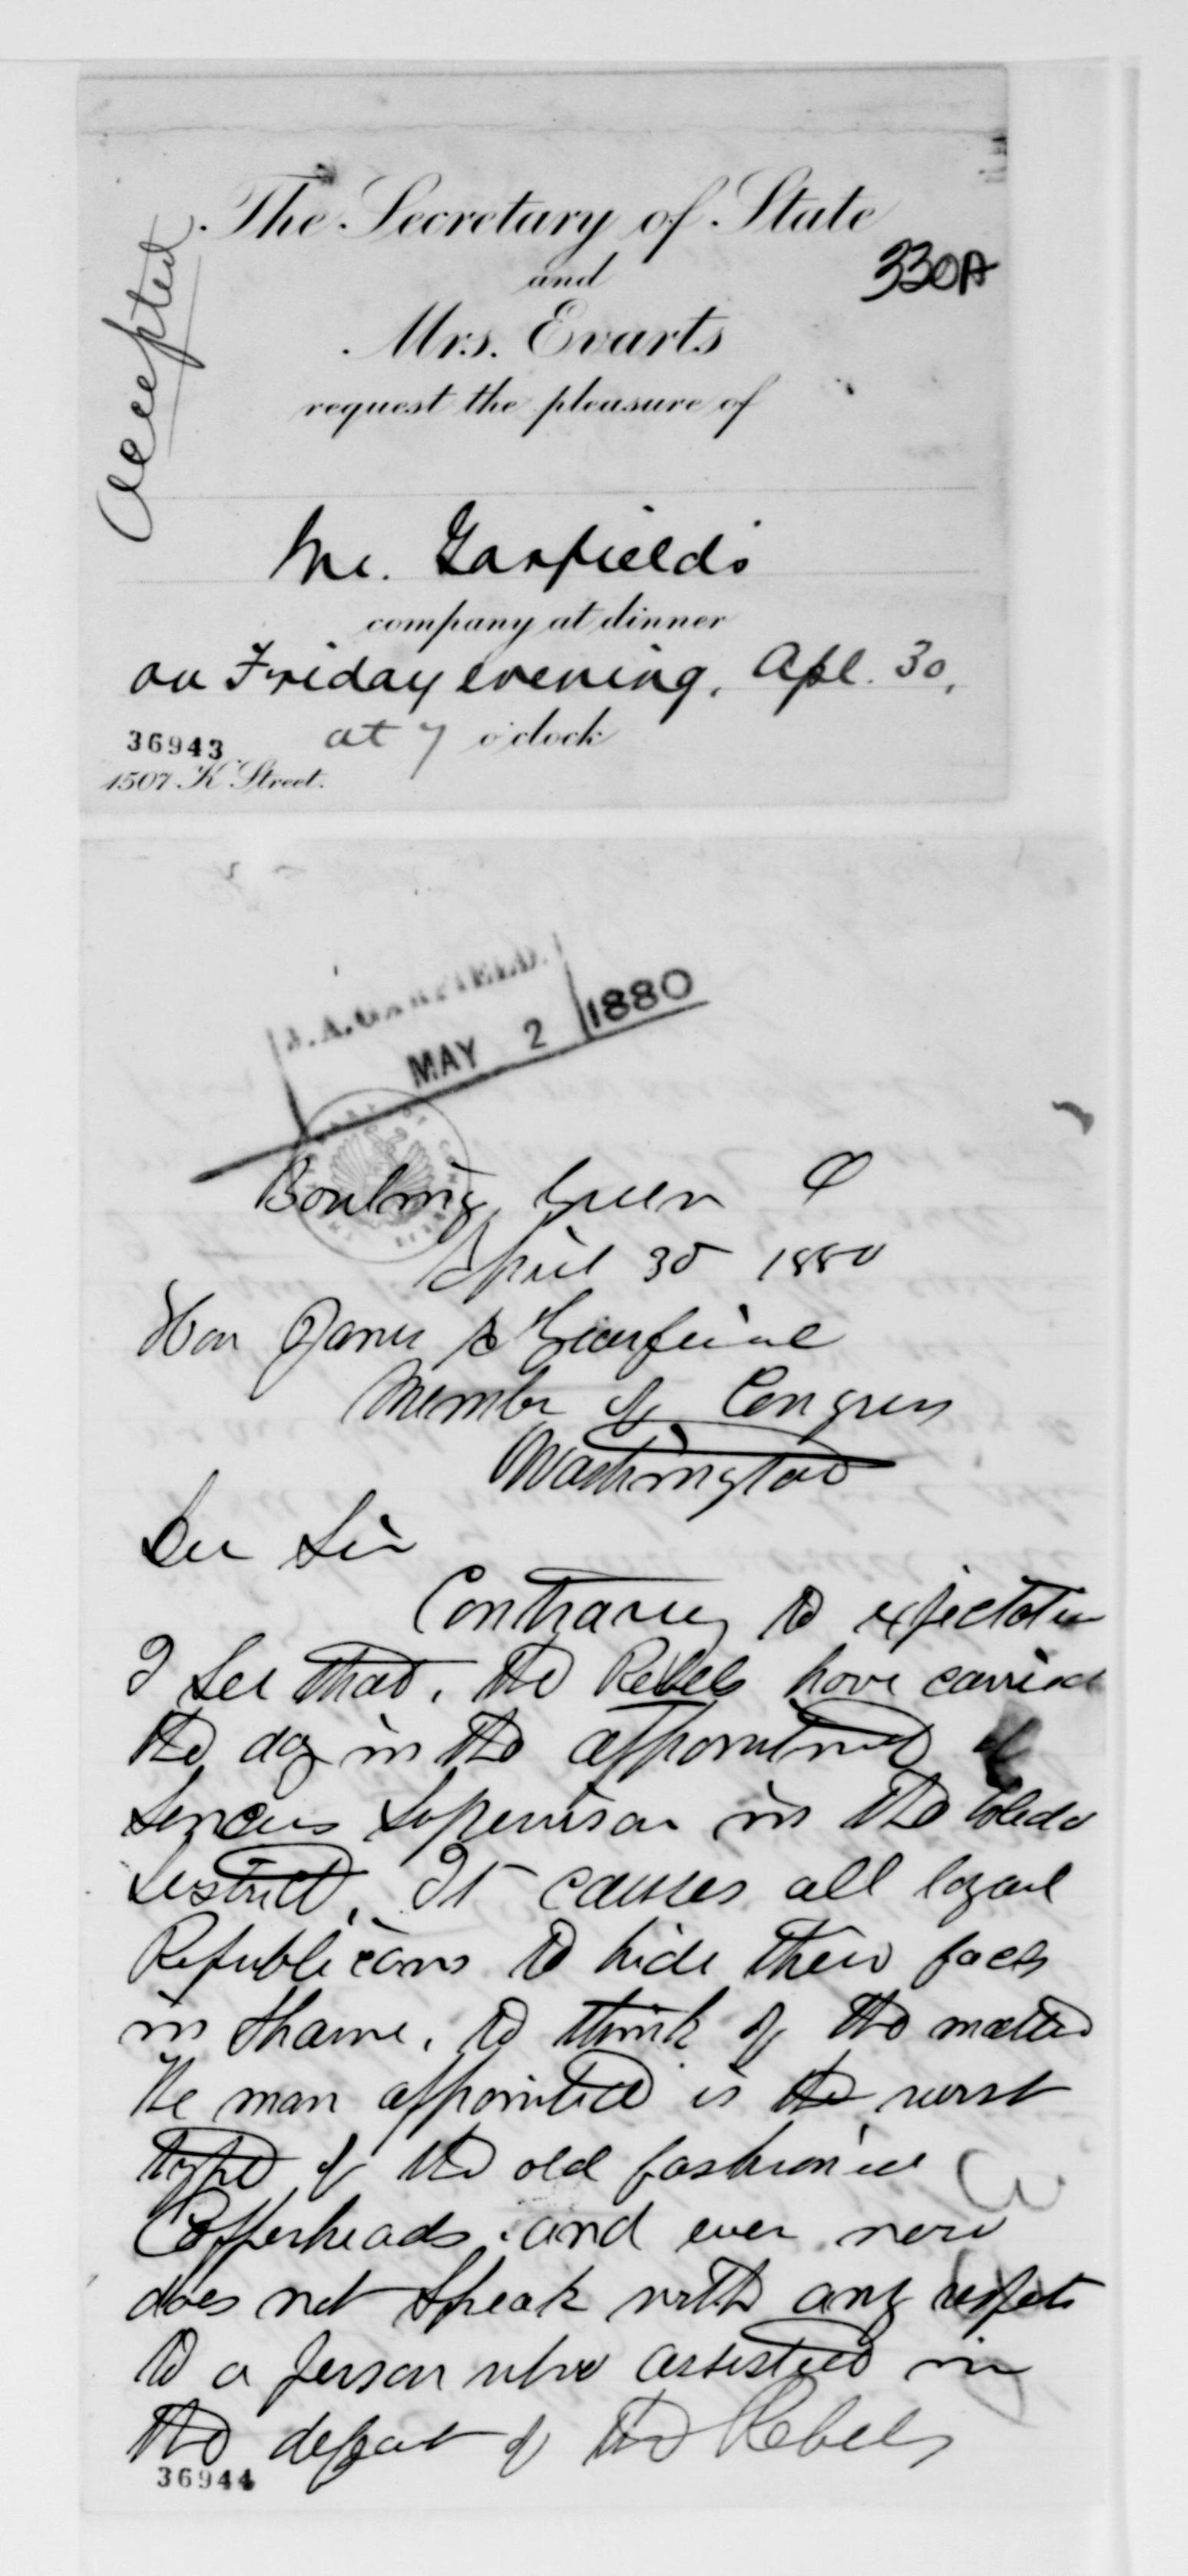 The Secretary of State
and
Mrs. Evarts
request the pleasure of
Mr. Garfield's
company at dinner
on Friday evening, Apl. 30,
at 7 o'clock
1507 K Street.
36943
Accepted
330A
J.A. GARFIELD.
MAY 2 1880
Bowling Green O
April 30 1880
Hon James A Garfield
Member of Congress
Washington
Dear Sir
Contrary to expectation
I see that, the Rebels have carried
the day in the appointment of
Sencus Supervisor in the Toledo
District, It causes all loyal
Republicans to hide their faces
in shame, to think of the matter
The man appointed is the worst
type of the old fashioned
Copperheads and even now
does not speak with any respect
to a person who assisted in
the defeat of the Rebels
36944